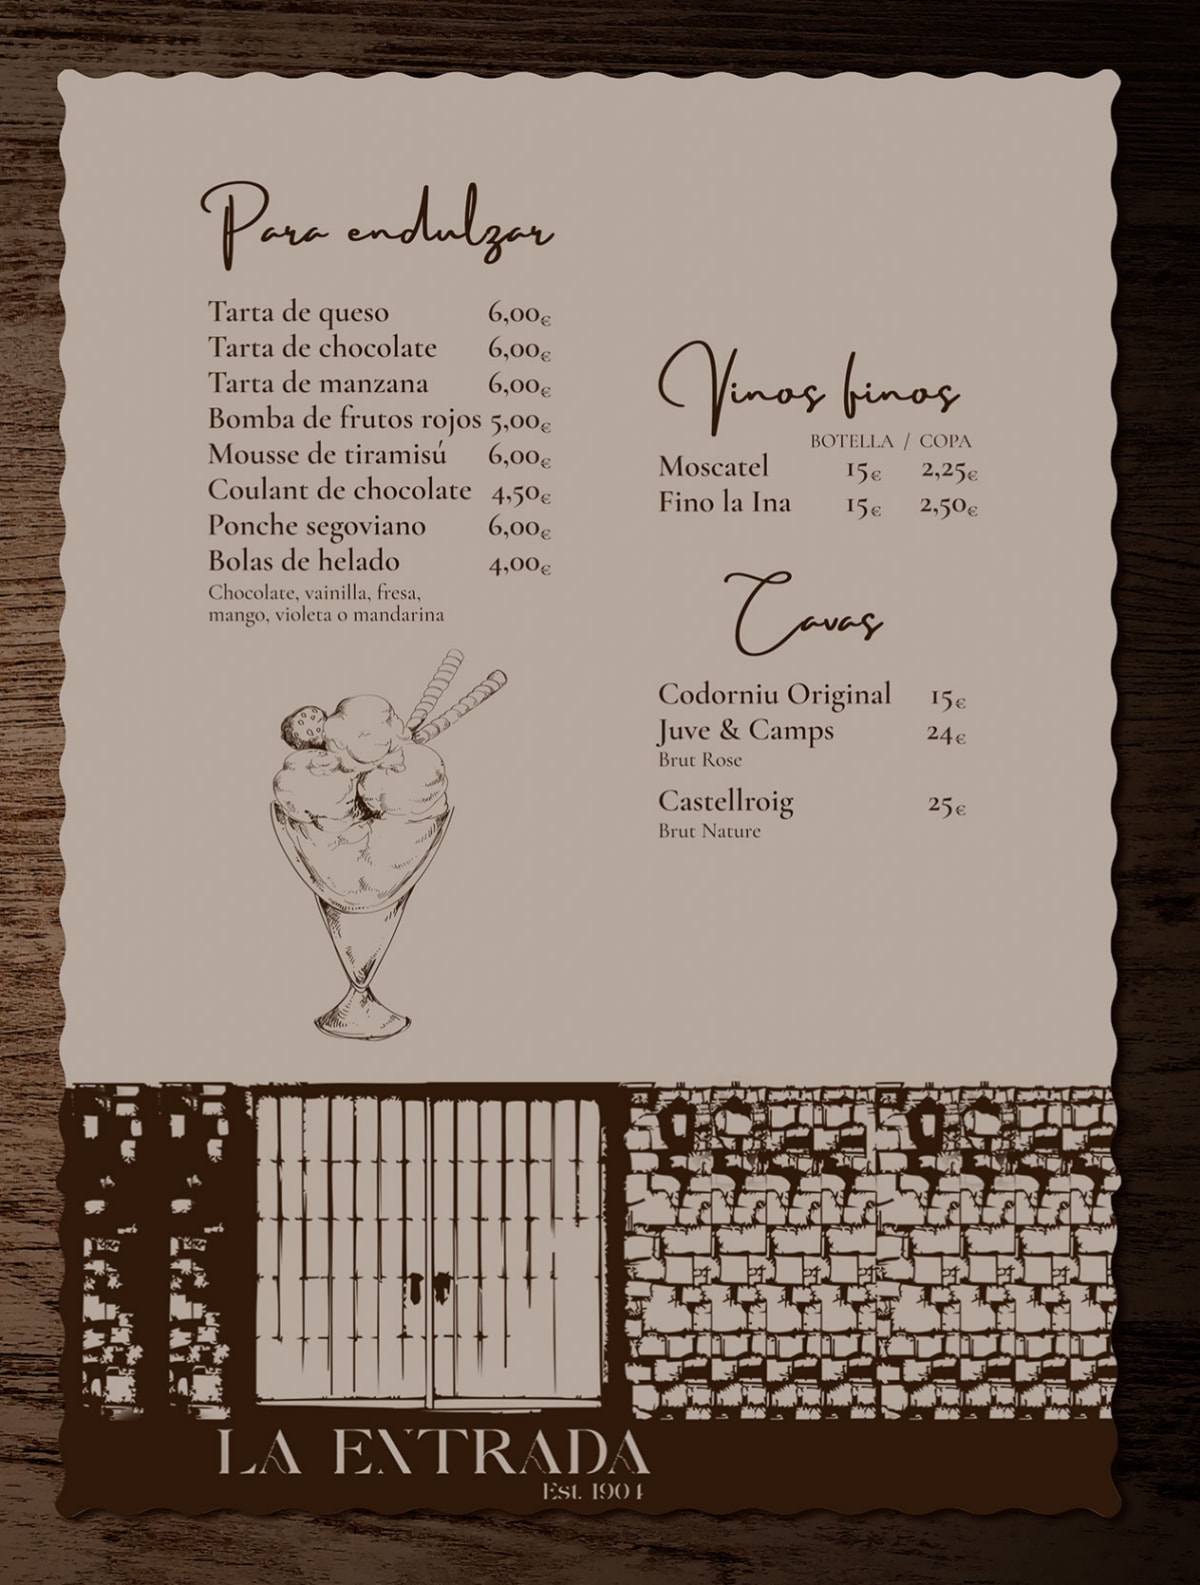 Para endulzar
Tarta de queso 6,00€
Tarta de chocolate 6,00€
Tarta de manzana 6,00€
Bomba de frutos rojos 5,00€
Mousse de tiramisú 6,00€
Coulant de chocolate 4,50€
Ponche segoviano 6,00€
Bolas de helado 4,00€
Chocolate, vainilla, fresa,
mango, violeta o mandarina
Vinos finos
BOTELLA / COPA
Moscatel 15€ 2,25€
Fino la Ina 15€ 2,50€
Cavas
Codorniu Original 15€
Juve & Camps 24€
Brut Rose
Castellroig 25€
Brut Nature
LA ENTRADA
Est. 1904